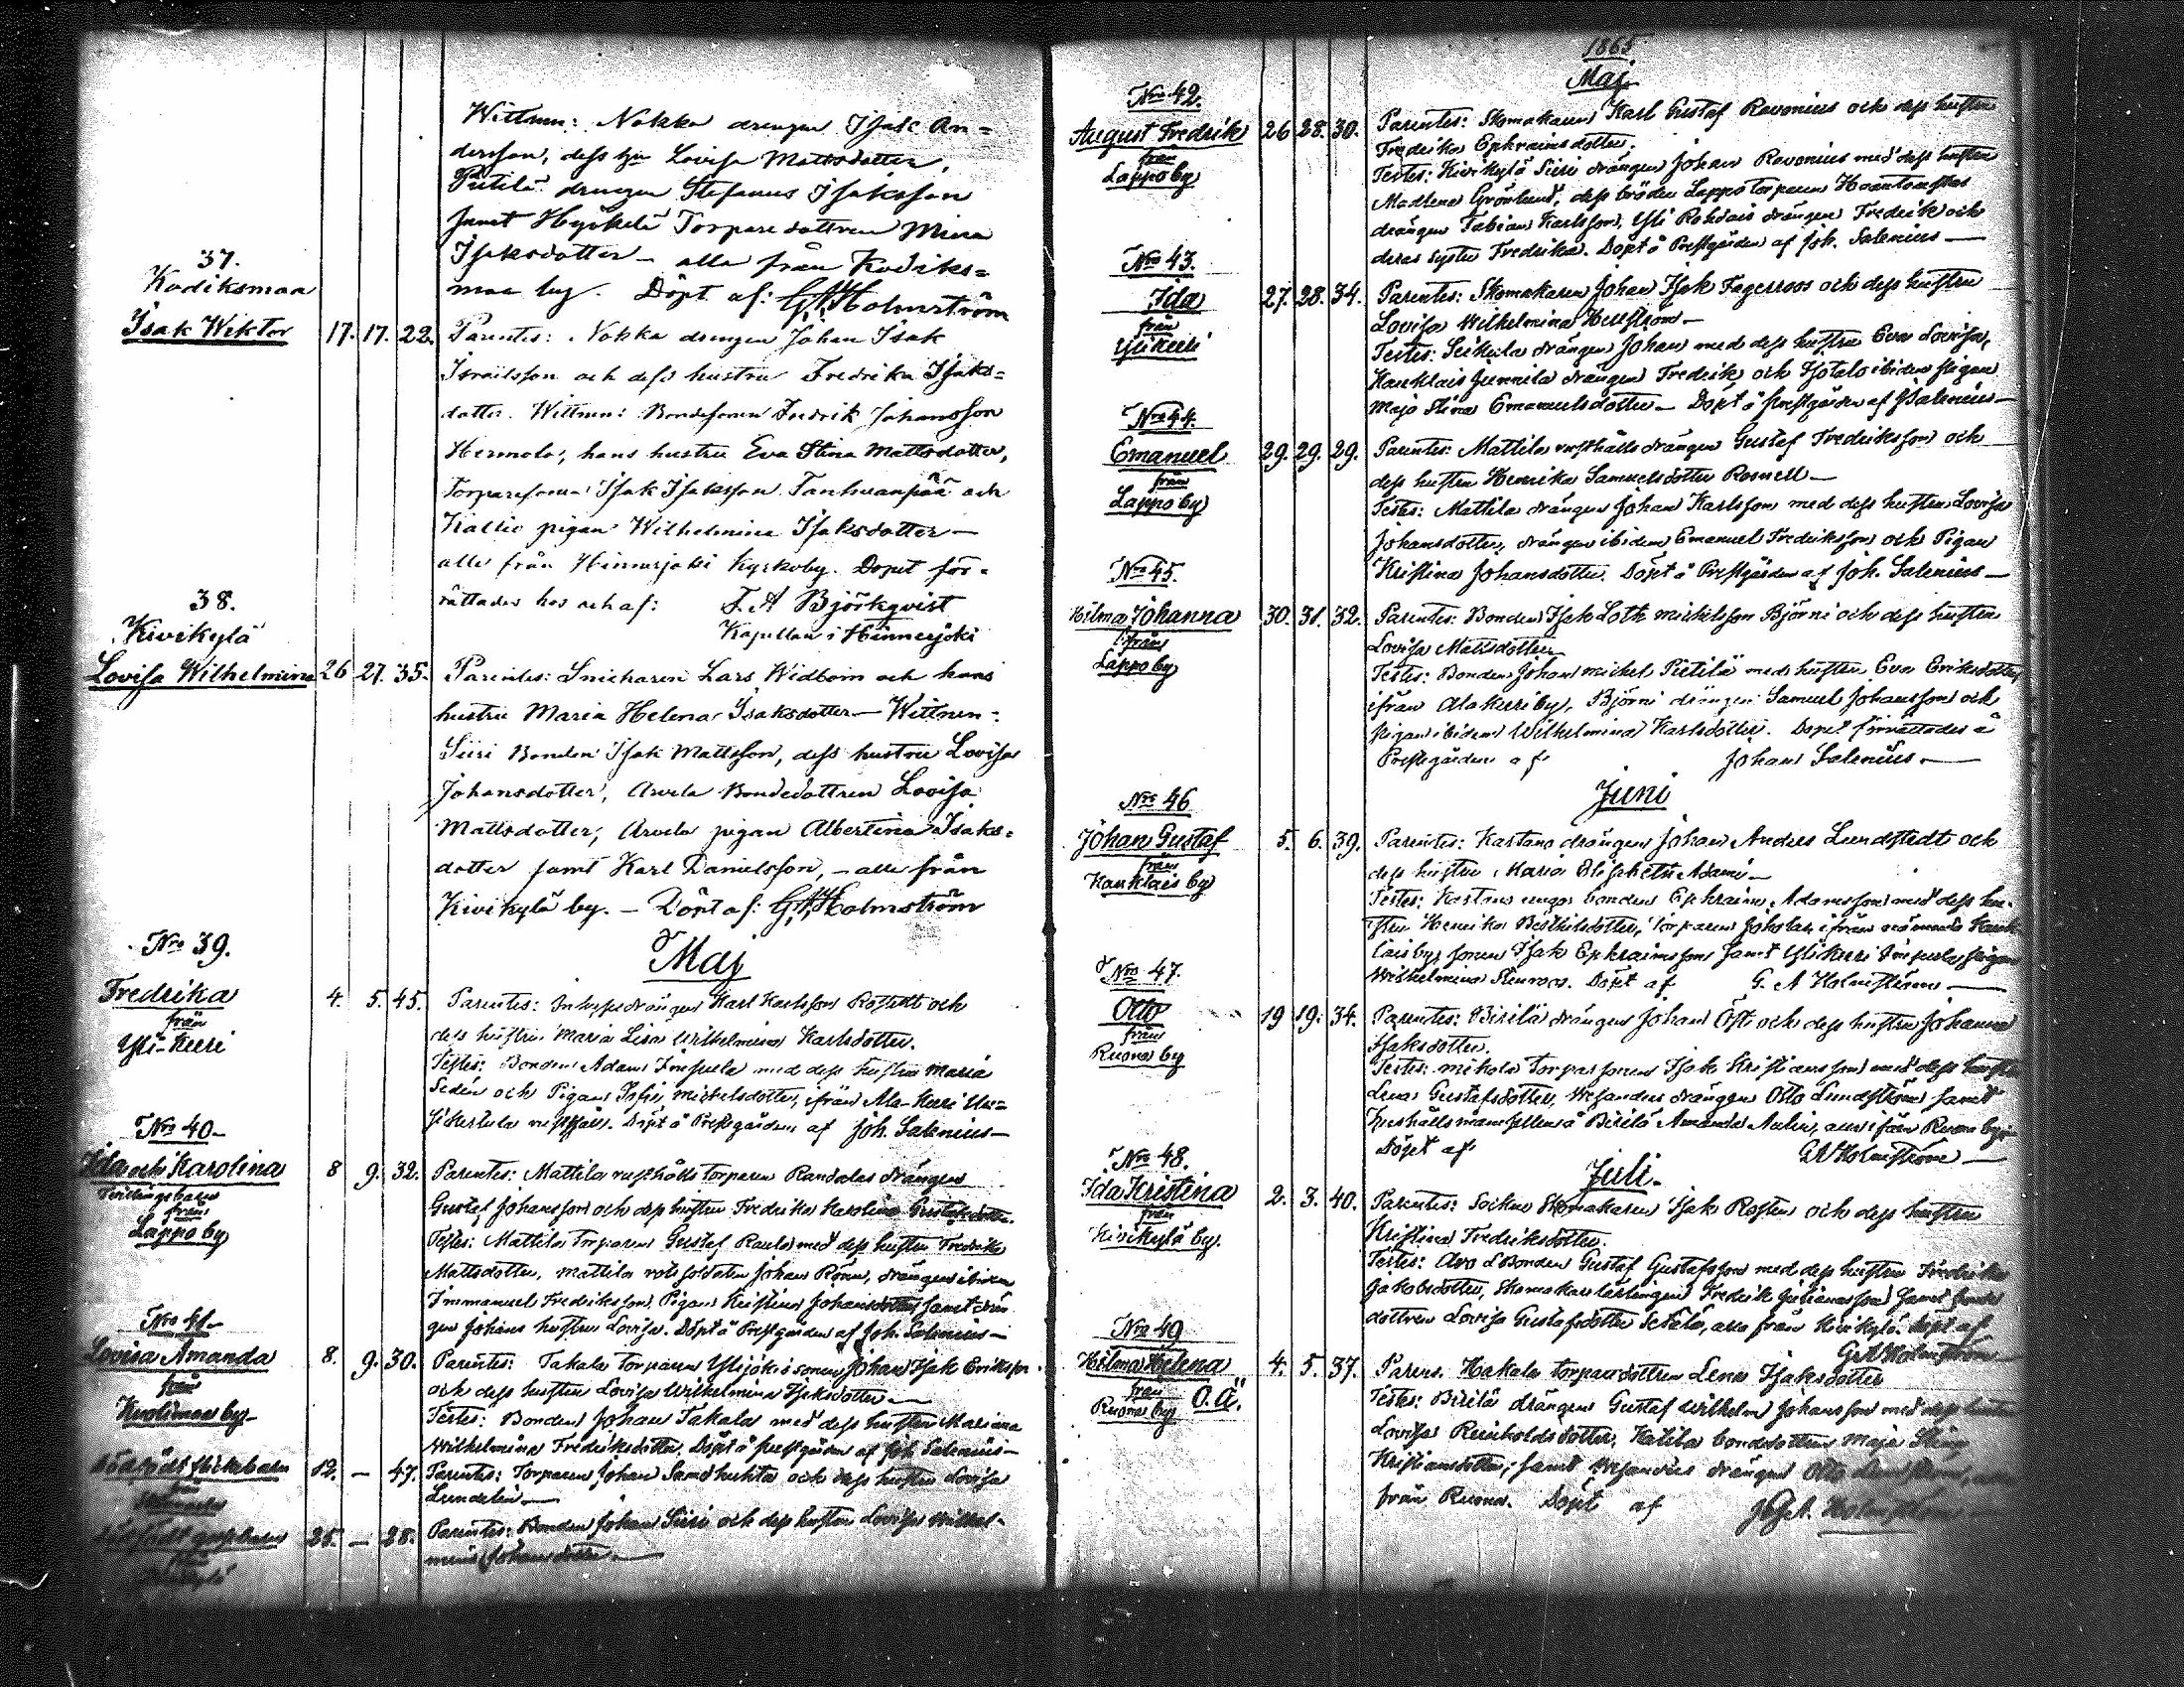 Wittnen: Nokka drengen Isak An=
dersson, dess hu Lovisa Mattsdotter,
Pietilä drengen Stefanus Isaksson
samt Hyökelä Torpare dottren Mina
Isaksdotter – alla från Kodiks=
maa by. Döpt af: G.A. Holmström
37.
Kodiksmaa
Isak Wiktor 17. 17. 22. Parentes: Nokka drengen Johan Isak
Israilsson och dess hustru Fredrika Isaks=
dotter. Wittnen: Bondesonen Fredrik Johansson
Hermola, hans hustru Eva Stina Mattsdotter,
Torparesonen Isak Isaksson Tanhuanpää och
Kallio pigan Wilhelmina Isaksdotter –
alla från Hinnerjoki Kyrkoby. Dopet för=
rättades hos och af: F. A Björkqvist
Kapellan i Hinnerjoki
38.
Kivikylä
Lovisa Wilhelmina 26 27. 35. Parentes: Snickaren Lars Widbom och hans
hustru Maria Helena Isaksdotter – Wittnen:
Siiri Bonden Isak Mattsson, dess hustru Lovisa
Johansdotter, Arvela Bondedottren Lovisa
Mattsdotter, Arvela pigan Albertina Isaks=
dotter samt Karl Danielsson, – alla från
Kivikylä by. – Döpt af: G.A. Holmström
Maj
Nro 39.
Fredrika 4. 5. 45. Parentes: drängen Karl Karlsson Rostedt och
från dess hustru Maria Lisa Wilhelmina Karlsdotter.
Yli-Kieri
Testes: Bonden Adam med dess hustru Maria
Sedén och Pigan Sofia Mickelsdotter, ifrån Ala-Kieri
rusthåll. Döpt å Prestgården af Joh. Salenius –
Nro 40 –
Ida och Karolina 8 9. 32. Parentes: Mattila rusthålls torparen Randalas drängen
Tvillingebarn
från
Lappo by
Gustaf Johansson och dess hustru Fredrika Karolina Gustafsdotter.
Testes: Mattila Torparen Gustaf Raula med dess hustru Fredrika
Mattsdotter, Mattila rote soldaten Johan Rönn, drängen ibidem
Immanuel Fredriksson, Pigan Kristina Johansdotter samt drän
gen Johans hustru Lovisa. Döpt å Prestgården af Joh. Salenius –
Nro 41 –
Lovisa Amanda 8. 9. 30. Parentes: Takala Torparen Ylijoki sonen Johan Isak Eriksson
från
by –
och dess hustru Lovisa Wilhelmina Isaksdotter –
Testes: Bonden Johan Takala med dess hustru Mariana
Wilhelmina Fredriksdotter. Döpt å prestgården af Joh. Salenius –
Dödfödt flickebarn 12. – 47. Parentes: Torparen Johan och dess hustru Lovisa
Lundelin –
25. – 28. Parentes: Bonden Johan Siiri och dess hustru Lovisa Wilhel-
mina Johansdotter. –
1865
Maj
Nro 42.
August Fredrik 26 28. 30. Parentes: Skomakaren Karl Gustaf Revonius och dess hustru
från
Lappo by
Fredrika Ephraimsdotter.
Testes: Kivikylä Siiri drängen Johan Revonius med dess hustru
Madlena Grönlund, dess broder Lappo torparen
drängen Fabian Karlsson, Yli Rohdais drängen Fredrik och
deras syster Fredrika. Döpt å Prestgården af Joh. Salenius –
Nro 43.
Ida 27. 28. 34. Parentes: Skomakaren Johan Isak Fagerroos och dess hustru
från
Ylikieri
Lovisa Wilhelmina Hellström –
Testes: drängen Johan med dess hustru Eva Lovisa,
Kauklais drängen Fredrik och ibidem pigan
Maja Stina Emanuelsdotter – Döpt å prestgården af J. Salenius –
Nro 44.
Emanuel 29. 29. 29. Parentes: Mattila rusthålls drängen Gustaf Fredriksson och
från
Lappo by
dess hustru Henrika Samuelsdotter Rosnell –
Testes: Mattila drängen Johan Karlsson med dess hustru Lovisa
Johansdotter, drängen ibidem Emanuel Fredriksson och Pigan
Kristina Johansdotter. Döpt å Prestgården af Joh. Salenius –
Nro 45.
Hilma Johanna 30. 31. 32. Parentes: Bonden Isak Loth Mickelsson Björni och dess hustru
från
Lappo by
Lovisa Mattsdotter
Testes: Bonden Johan Mickel Pietilä med hustru Eva Eriksdotter
ifrån Alakieri by, Björni drängen Samuel Johansson och
pigan ibidem Wilhelmina Karlsdotter. Dopet förrättades å
Prestgården af Johan Salenius –
Juni
Nro 46
Johan Gustaf 5. 6. 39. Parentes: Kastana drängen Johan Anders Lundstedt och
från
Kauklais by
dess hustru Maria Elisabeth Adami –
Testes: Kastana unga bonden Ephraim Adamsson med dess hu-
stru Henrika torparen Jokola ifrån nämnde Kauk
lais by, sonen Isak Ephraimsson samt Ylikieri pigan
Wilhelmina Stenroos. Döpt af G. A Holmström –
Nro 47.
Otto 19 19. 34. Parentes: Birilä drängen Johan Öst och dess hustru Johanna
från
Ruona by
Isaksdotter.
Testes: Mikola Torpar sonen Isak Kristiansson med dess hustru
Lena Gustafsdotter, drängen Otto Lundström samt
Hushålls mamsellen å Birilä Amanda Aulin, alla ifrån Ruona by –
Döpt af GA Holmström –
Juli –
Nro 48.
Ida Kristina 2. 3. 40. Parentes: Socken Skomakaren Isak Rosten och dess hustru
från
Kivikylä by.
Kristina Fredriksdotter.
Testes: Bonden Gustaf Gustafsson med dess hustru Fredrika
Jakobsdotter, Skomakare lärlingen Fredrik Julianasson samt
dottren Lovisa Gustafsdotter alla från Kivikylä. Döpt af
GA Holmström
Nro 49
Hilma Helena 4. 5. 37. Parens. Hakala torparedottren Lena Isaksdotter
från
Ruona by O.Ä.
Testes: Birilä drängen Gustaf Wilhelm Johansson med dess hustru
Lovisa Reinholdsdotter, Katila bondedottren Maja Stina
Kristiansdotter, samt drängen Otto Lundström, alla
från Ruona. Döpt af G.A. Holmström